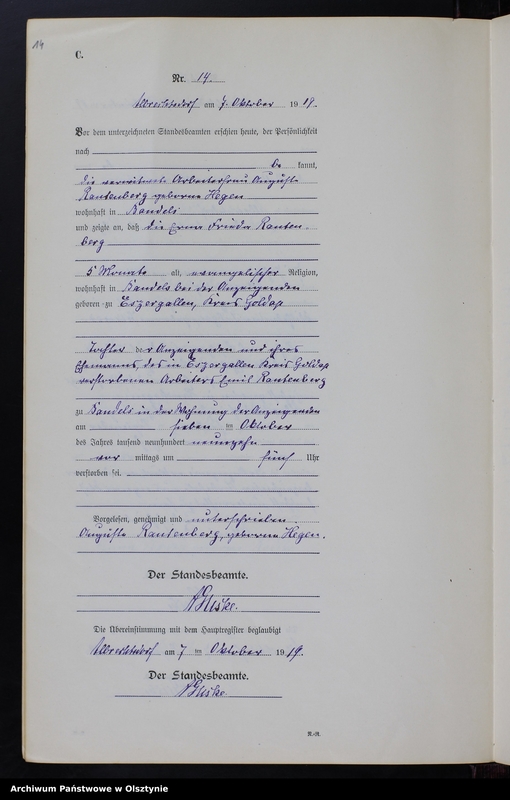 14
C.
Nr. 14.
Albrechtsdorf am 7. Oktober 1919.
Vor dem unterzeichneten Standesbeamten erschien heute, der Persönlichkeit
nach
be kannt,
die verwitwete Arbeiterfrau Auguste
Rautenberg geborene Hegen
wohnhaft in Kandels
und zeigte an, daß die Erna Frieda Rauten-
berg
5 Monate alt, evangelischer Religion,
wohnhaft in Kandels bei der Anzeigenden
geboren zu Eszergallen, Kreis Goldap
Tochter der Anzeigenden und ihres
Ehemanns, des in Eszergallen Kreis Goldap
verstorbenen Arbeiters Emil Rautenberg
zu Kandels in der Wohnung der Anzeigenden
am sieben ten Oktober
des Jahres tausend neunhundert neunzehn
vor mittags um fünf Uhr
verstorben sei.
Vorgelesen, genehmigt und unterschrieben.
Auguste Rautenberg, geborene Hegen.
Der Standesbeamte.
Die Übereinstimmung mit dem Hauptregister beglaubigt
Albrechtsdorf am 7 ten Oktober 1919.
Der Standesbeamte.
R.-R.
Archiwum Państwowe w Olsztynie